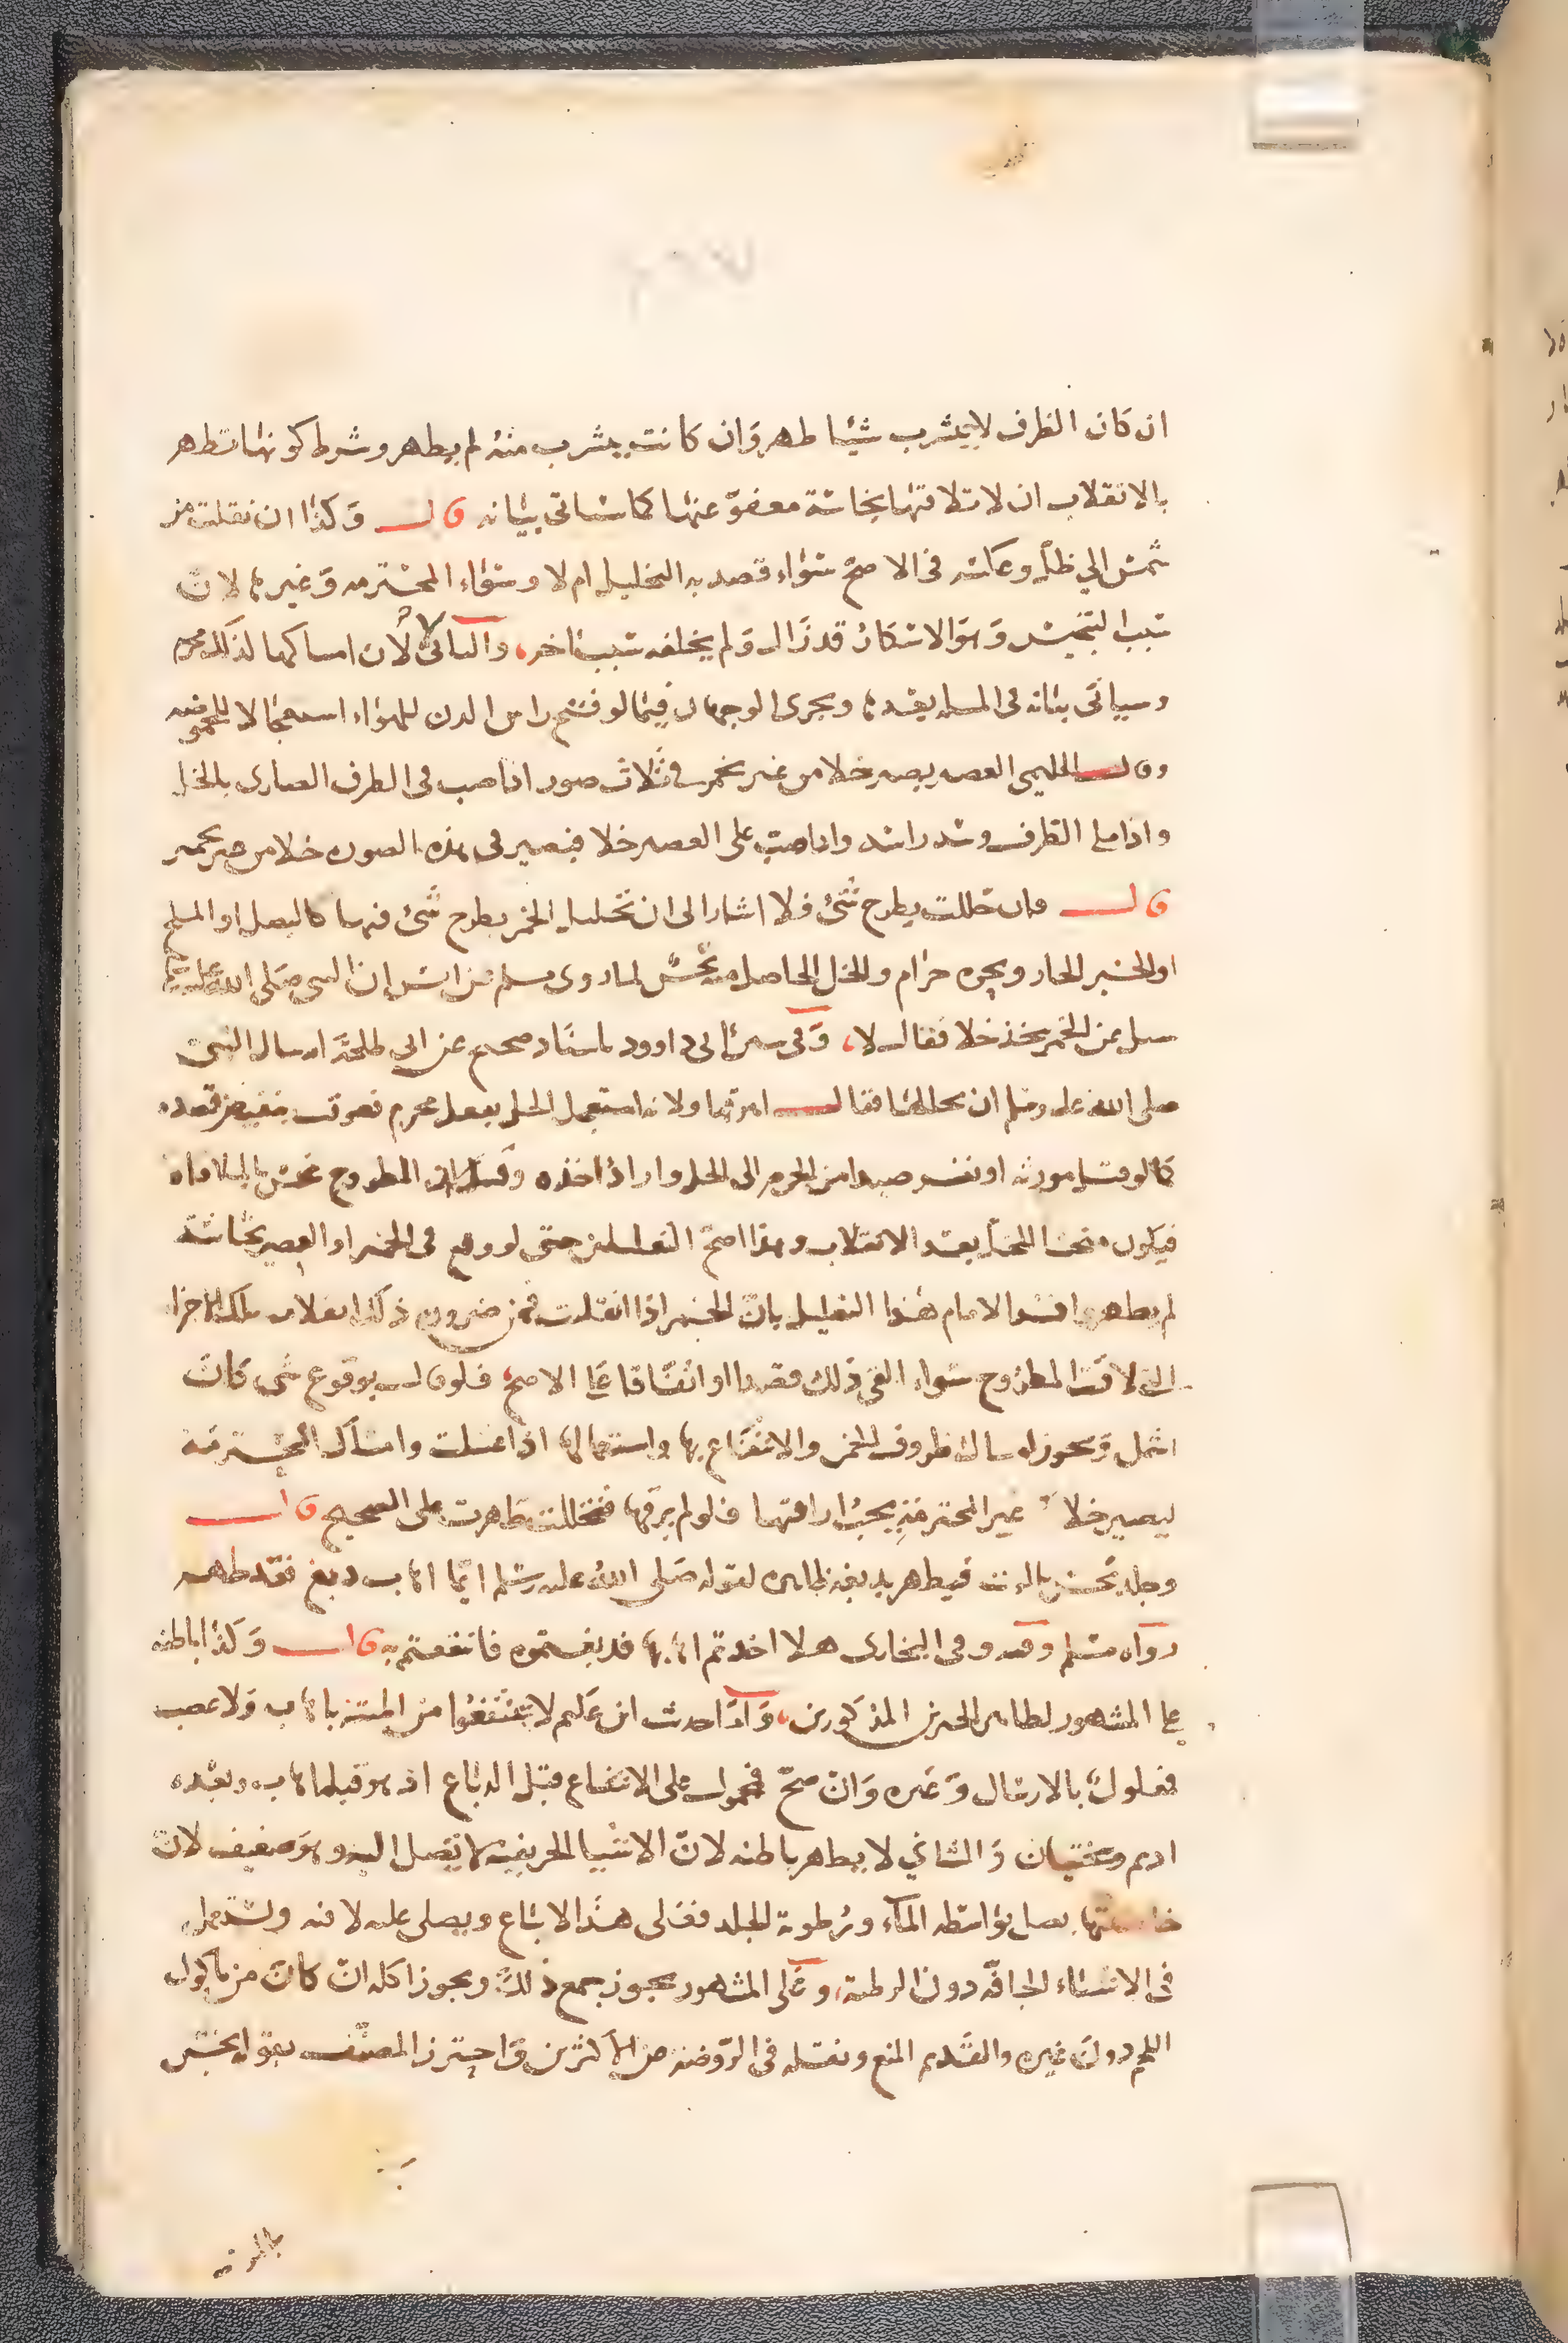 ان كان الظرف لا يتشرب شيئا طهر وان كانت يتشرب منه لم يطهر وشرط كونها تطهر
بالانقلاب ان لا تلاقيها نجاسة معفو عنها كما سياتى بيانه قال وكذا ان نقلت من
شمس الي ظل وعكسه فى الاصح سواء قصد به التخليل ام لا وسواء المحترمه وغيرها لان
سبب التنجيس وهو الاسكار قد زال ولم يخلفه سبب اخر والثانى لا لان امساكها لذلك محرم
وسياتى بيانه فى المسله بعدها ويجرى الوجهان فيما لو فتح راس الدن للهواء استعجالا للحموضه
وقال الحليمى العصير يصير خلا من غير تخمر فى ثلاث صور اذا صب فى الظرف الضارى بالخل
واذا ملى الظرف وشد راسه واذا صب على العصير خلا فيصير فى هذه الصوره خلا من غير تخمر
قال فان خللت بطرح شئ فلا اشار الى ان تخليل الخمر بطرح شئ فيها كالبصل او الملح
او الخبز الحار ونحوه حرام والخل الحاصل منه نجس لما روى مسلم عن انس ان النبى صلى الله عليه وسلم
سيل عن الخمر يتخذ خلا فقال لا وفى سنن ابى داوود باسناد صحيح عن ابى طلحة انه سال النبى
صلى الله عليه وسلم ان يخللها فقال اهرقها ولانه استعجل الخل بفعل محرم فعوقب بنقيض قصده
كما لو قتل مورثه او نفر صيدا من الحرم الى الحل واراد اخذه وقيل لان المطروح نجس بالملاقاه
فيكون منجسا للخل بعد الانقلاب وهذا اصح التعليلين حتى لو وقع فى الخمر او العصير نجاسة
لم يطهر وافسد الامام هذا التعليل بان الخمر اذا انقلبت فمن ضرورة ذلك انقلاب تلك الاجزا
التى لاقت المطروح سواء القى ذلك قصدا او اتفاقا على الاصح فلو قال بوقوع شى كان
اشمل ويجوز امساك ظروف الخمر والانتفاع بها واستعمالها اذا غسلت وامساك المحترمة
ليصير خلا غير المحترمة يجب اراقتها فلو لم يرقها فتخللت طهرت على الصحيح قال
وجلد نجس بالموت فيطهر بدبغه ظاهره لقوله صلى الله عليه وسلم ايما اهاب دبغ فقد طهر
رواه مسلم وفيه وفى البخارى هلا اخذتم اهابها فدبغتموه فانتفعتم به قال وكذا باطنه
على المشهور لظاهر الخبرين المذكورين واما حديث ابن عكيم لا تنتفعوا من الميتة باهاب ولا عصب
فمعلول بالارسال وغيره وان صح فمحمول على الانتفاع قبل الدباغ اذ هو قبلها اهاب وبعده
اديم وسختيان والثاني لا يطهر باطنه لان الاشيا الحريفة لا تصل اليه وهو ضعيف لان
خاصيتها يصل بواسطه الماء ورطوبة الجلد فعلى هذا لا يباع ويصلى عليه لا فيه ويستعمل
فى الاشياء الجافه دون الرطبة وعلى المشهور يجوز جميع ذلك ويجوز اكله ان كان من ماكول
اللحم دون غيره والقديم المنع ونقله فى الروضه عن الاكثرين واحترز المصنف بقوله نجس
بالموت